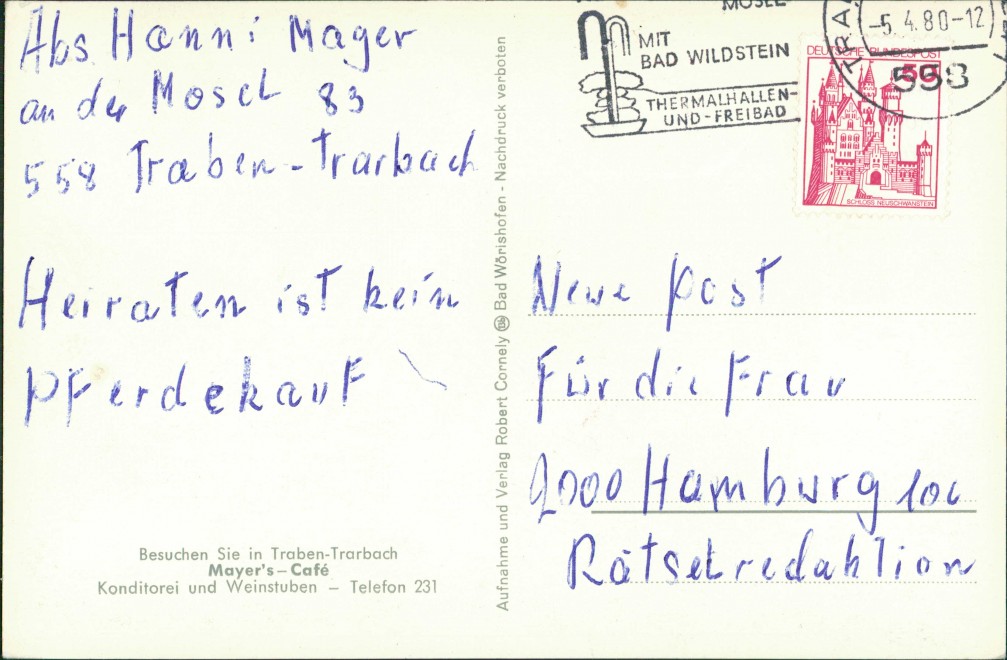 Abs Hanni Mager
an der Mosel 83
558 Traben-Trarbach
Heiraten ist kein
Pferdekauf
Besuchen Sie in Traben-Trarbach
Mayer's – Café
Konditorei und Weinstuben – Telefon 231
Aufnahme und Verlag Robert Cornely Bad Wörishofen - Nachdruck verboten
MOSEL-
MIT
BAD WILDSTEIN
THERMALHALLEN-
UND-FREIBAD
TRA
-5.4.80-12
558
DEUTSCHE BUNDESPOST
SCHLOSS NEUSCHWANSTEIN
Neue Post
Für die Frau
2000 Hamburg 100
Rätselredaktion